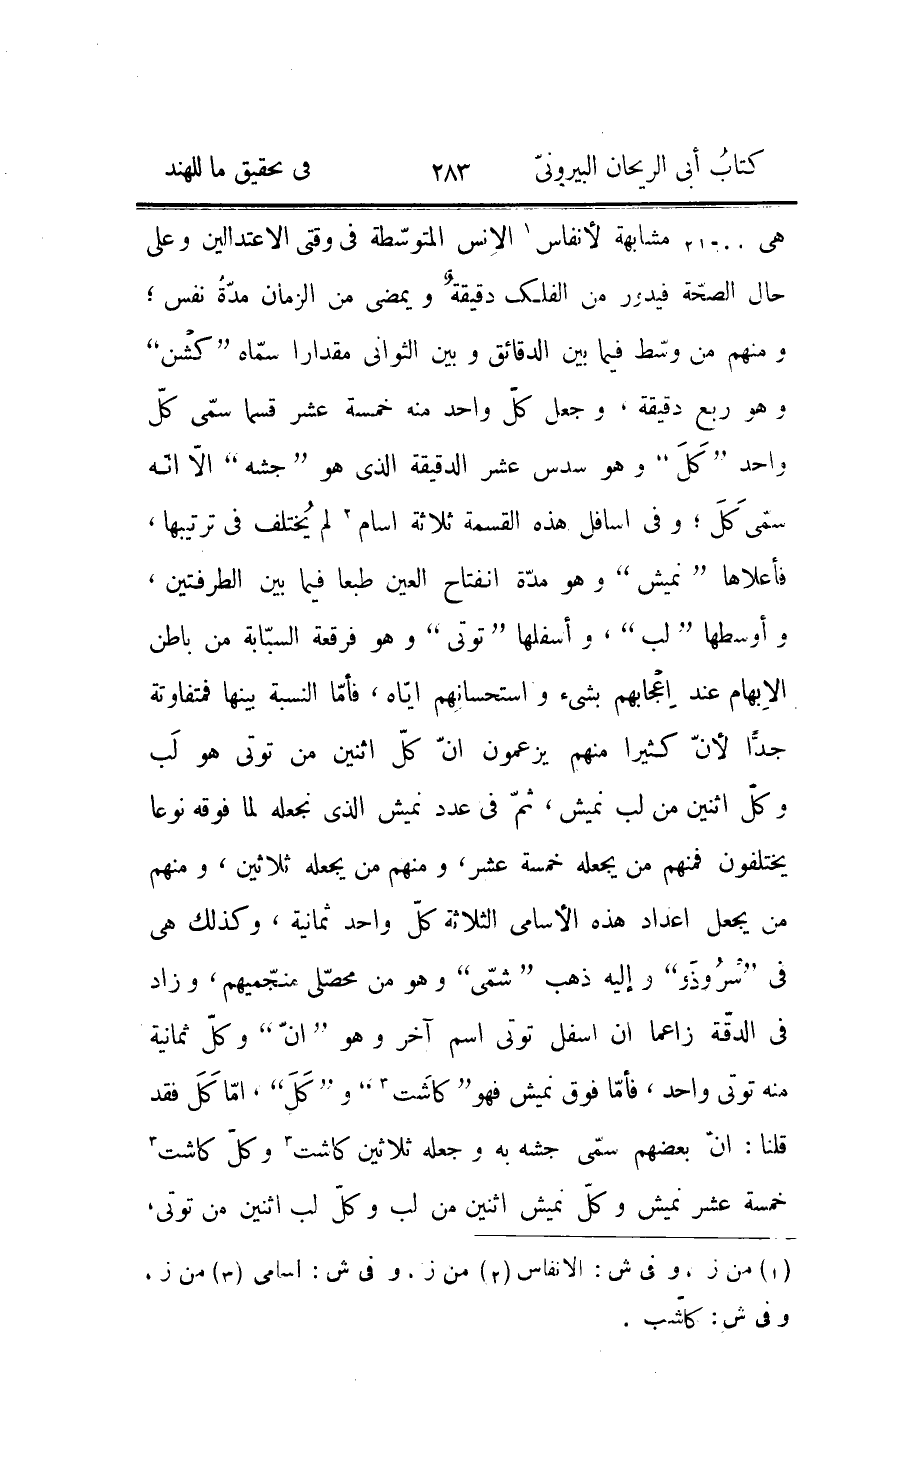 كتابُ أبى الريحان البيرونىّ ٢٨٣ فى تحقيق ما للهند
هى ٢١٦٠٠ مشابهة لأنفاس١ الإنس المتوسّطة فى وقتى الاعتدالين وعلى
حال الصحّة فيدور من الفلك دقيقةٌ و يمضى من الزمان مدّةُ نفس ؛
و منهم من وسّط فيما بين الدقائق و بين الثوانى مقدارا سمّاه ”كشن“
و هو ربع دقيقة ، و جعل كلّ واحد منه خمسة عشر قسما سمّى كلّ
واحد ”كَلَ“ و هو سدس عشر الدقيقة الذى هو ”جشه“ الّا انّه
سمّى كَلَ ؛ و فى اسافل هذه القسمة ثلاثة اسام٢ لم يُختلف فى ترتيبها ،
فأعلاها ”نميش“ و هو مدّة انفتاح العين طبعا فيما بين الطرفتين ،
و أوسطها ”لب“ ، و أسفلها ”توتى“ و هو فرقعة السبّابة من باطن
الإبهام عند إعجابهم بشىء و استحسانهم ايّاه ، فأمّا النسبة بينها فمتفاوتة
جدًّا لأنّ كثيرا منهم يزعمون انّ كلّ اثنين من توتى هو لَب
و كلّ اثنين من لب نميش ، ثمّ فى عدد نميش الذى نجعله لما فوقه نوعا
يختلفون فمنهم من يجعله خمسة عشر ، و منهم من يجعله ثلاثين ، و منهم
من يجعل اعداد هذه الأسامى الثلاثة كلّ واحد ثمانية ، و كذلك هى
فى ”سْرُوذَوَ“ و إليه ذهب ”شمّى“ و هو من محصّلى منجّميهم ، و زاد
فى الدقّة زاعما ان اسفل توتى اسم آخر و هو ”انّ“ و كلّ ثمانية
منه توتى واحد ، فأمّا فوق نميش فهو ”كاشت٣“ و ”كَلَ“ ، امّا كَلَ فقد
قلنا : انّ بعضهم سمّى جشه به و جعله ثلاثين كاشت٣ و كلّ كاشت٣
خمسة عشر نميش و كلّ نميش اثنين من لب و كلّ لب اثنين من توتى ،
(١) من ز ، و فى ش : الانفاس (٢) من ز ، و فى ش : اسامى (٣) من ز ،
و فى ش : كاشّب .